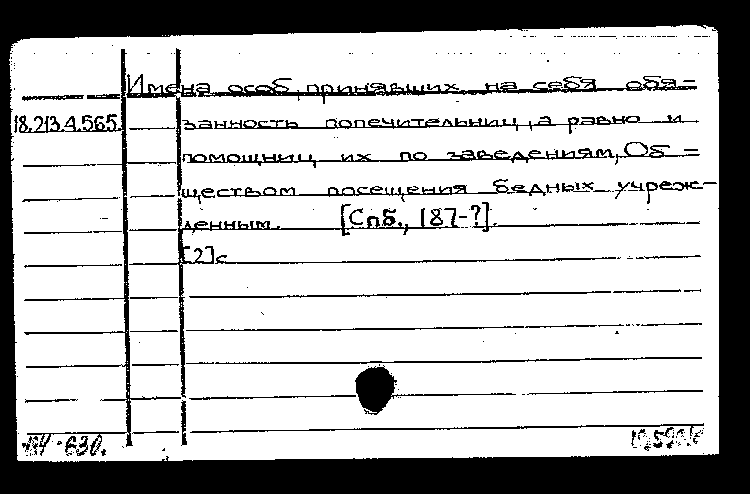 Имена особ, принявших на себя обя=
18.213.4.565. занность попечительниц, а равно и
помощниц их по заведениям, Об=
ществом посещения бедных учреж-
денным. [Спб., 187-?].
[2]с
630.